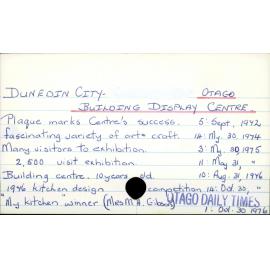 DUNEDIN CITY- OTAGO
BUILDING DISPLAY CENTRE.
Plaque marks Centre's success. 5: Sept., 1972
fascinating variety of art & craft. 14: My. 30, 1974
Many visitors to exhibition. 3: My. 30, 1975
2,500 visit exhibition. 11: May 31, "
Building centre. 10 years old. 10: Aug. 31, 1976
1976 kitchen design competition 14: Oct. 30, "
"My kitchen" winner (Mrs M. A. Gibson) OTAGO DAILY TIMES
1: Oct. 30 1976